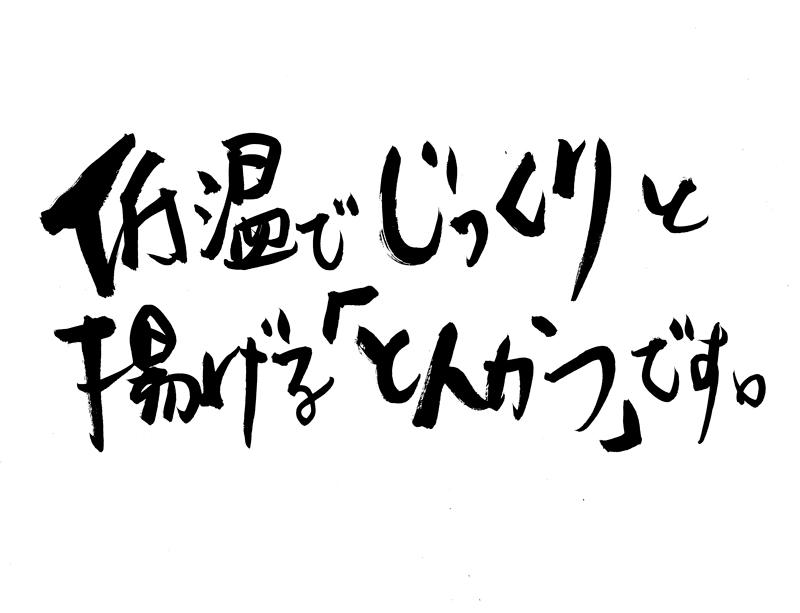 低温でじっくりと
揚げる「とんかつ」です。